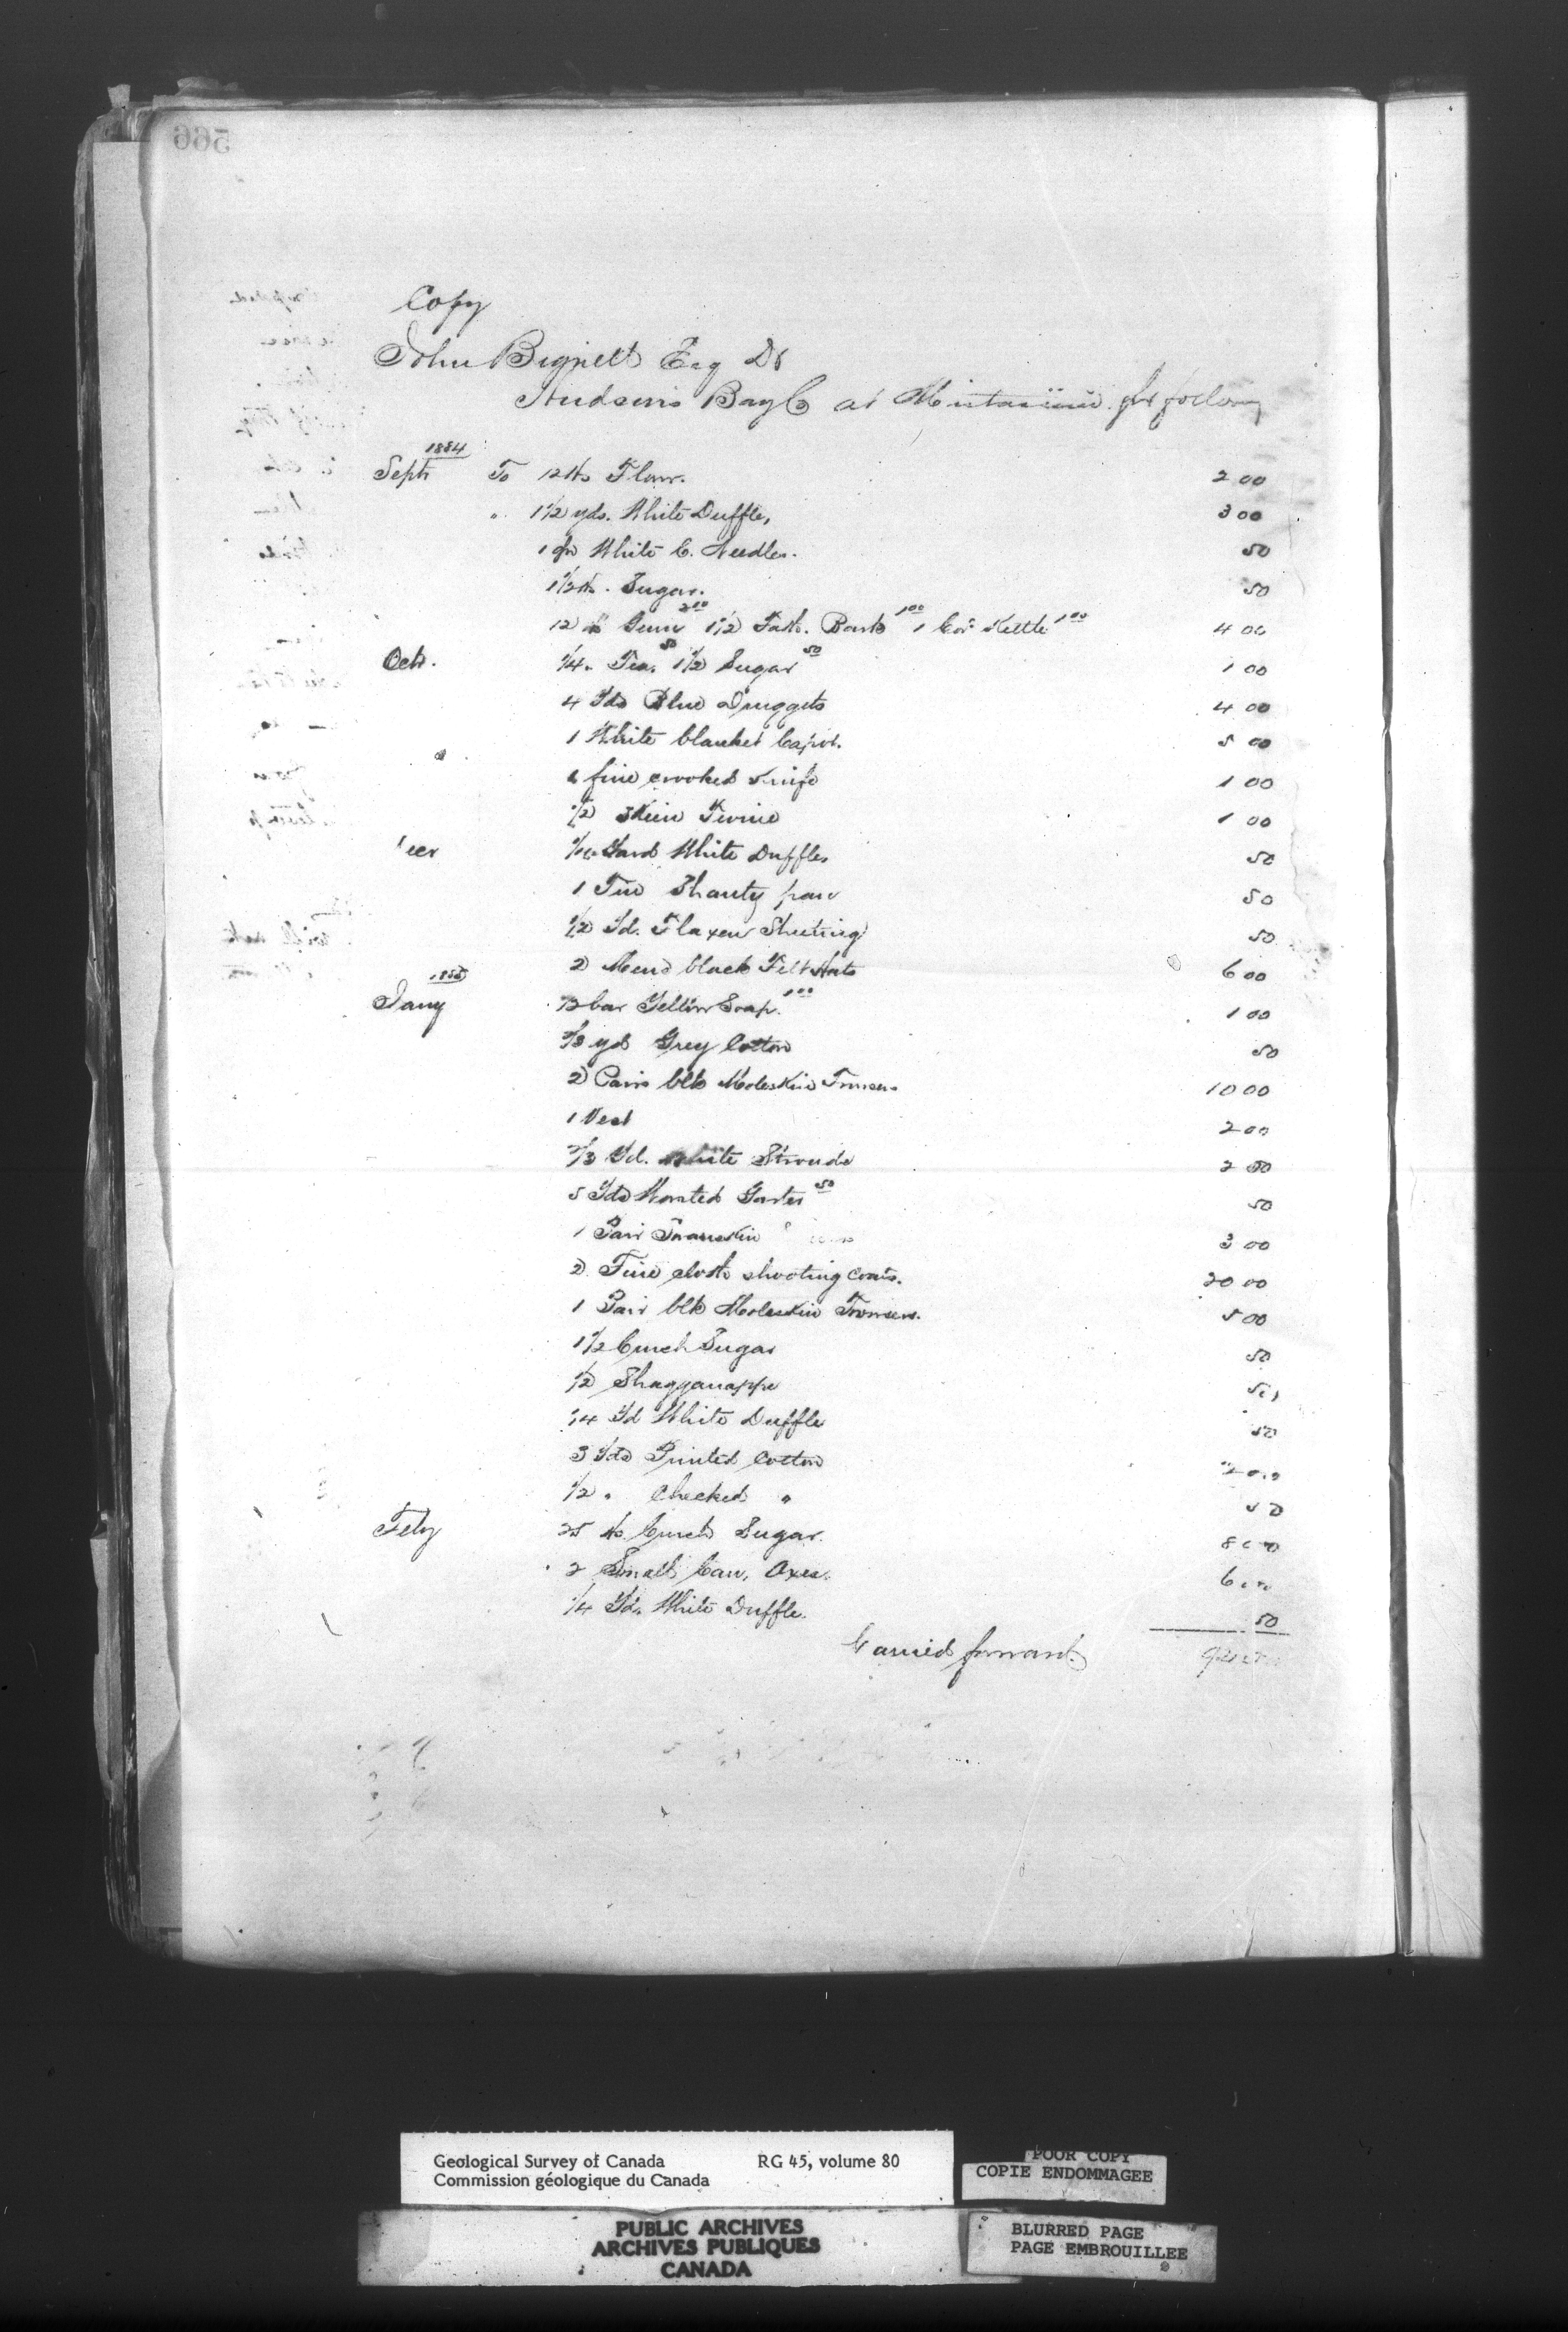 566
Copy
John Bignell Esq Dr
Hudson's Bay Co at Mistassini for following
1884
Septr To 12 lbs Flour. 2 00
" 1 1/2 yds. White Duffle, 3 00
1 pr White C. Needles. 50
1 1/2 lb. Sugar. 50
12 lb Gum 2 00 1 1/2 Fath. Bark 1 00 1 Cov'd Kettle 1 00 4 00
Octr. 1/4 " Tea. 50 1 1/2 Sugar 50 1 00
4 Yds Blue Druggets 4 00
1 White blanket Capot. 5 00
1 fine crooked Knife 1 00
1/2 Skein Twine 1 00
Yard White Duffles 50
1 Tin Shanty pan 50
1/2 Yd. Flaxen Sheeting 50
2 Mens black Felt Hats 6 00
1885
Jany 1/2 bar Yellow Soap. 1 00 1 00
yd Grey Cotton 50
2 Pairs blk Moleskin Trousers 10 00
1 Vest 2 00
2/3 Yd. White Strouds 2 00
5 Yds Worsted Garter 50 50
1 Pair 3 00
2 Fine cloth shooting coats. 20 00
1 Pair blk Moleskin Trousers. 5 00
1 1/2 Crush Sugar 50
1/2 Shagganappe 50
1/4 Yd White Duffle 50
3 Yds Printed Cotton 2 00
1/2 " Checked " 50
Feby 25 lb. Crush Sugar. 8 00
2 Small Can. Axes. 6 00
1/4 Yd. White Duffle. 50
Carried forward
Geological Survey of Canada RG 45, volume 80
Commission géologique du Canada
POOR COPY
COPIE ENDOMMAGEE
PUBLIC ARCHIVES
ARCHIVES PUBLIQUES
CANADA
BLURRED PAGE
PAGE EMBROUILLEE